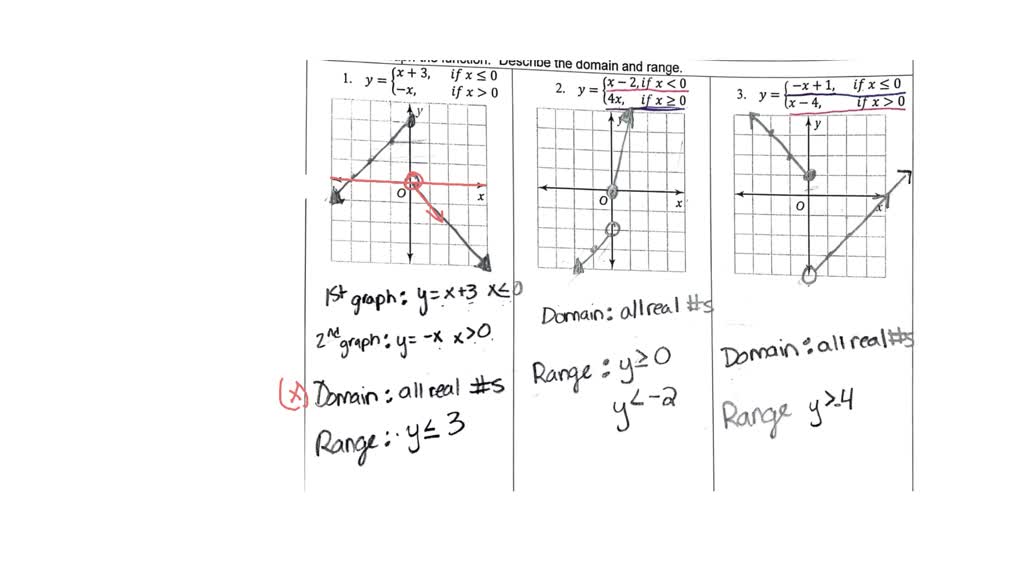 the function. Describe the domain and range.
1. y = { x + 3, if x ≤ 0
−x, if x > 0
y
O
x
1st graph: y = x+3 x ≤ 0
2nd graph: y = -x x > 0
(x) Domain: all real #s
Range: y ≤ 3
2. y = { x − 2, if x < 0
4x, if x ≥ 0
y
O
x
Domain: all real #s
Range: y ≥ 0
y < -2
3. y = { −x + 1, if x ≤ 0
x − 4, if x > 0
y
O
x
Domain: all real #s
Range y > -4